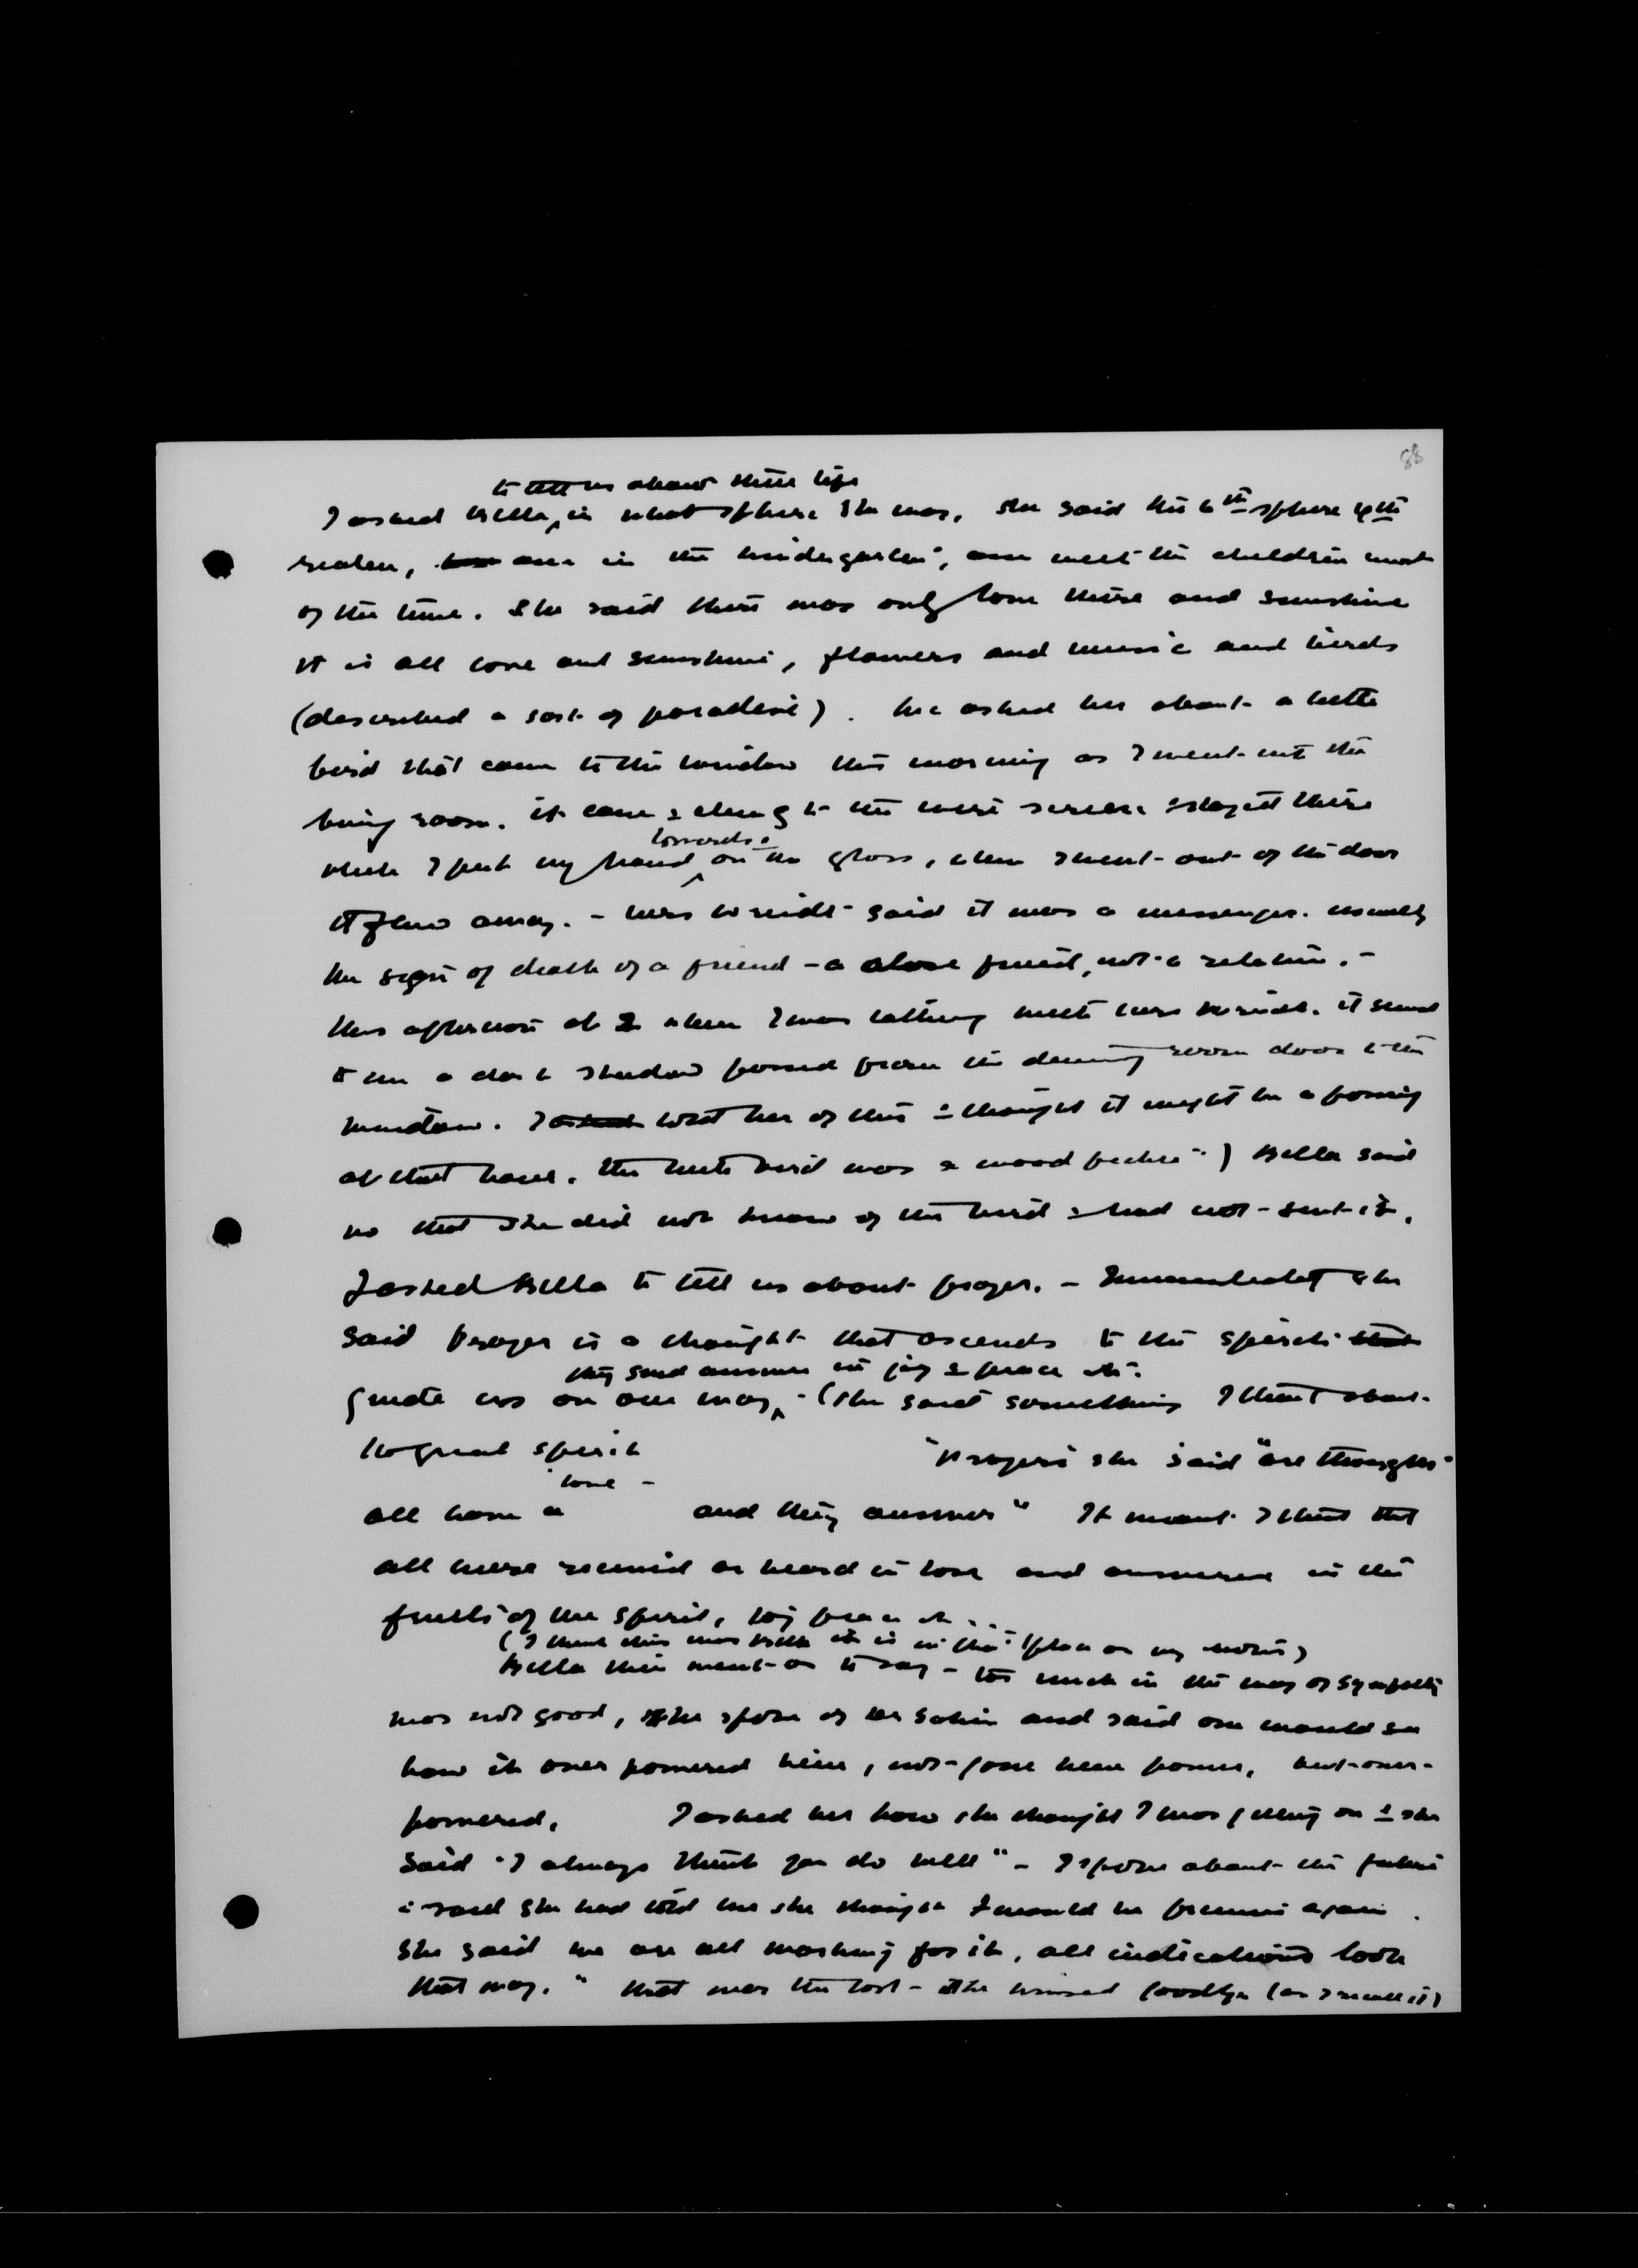 88
to tell us about their life
I asked Bella, in what sphere she was, she said the 6th sphere 4th
realm, are in the kindergarten, meet the children most
of the time. She said there was only love there and sunshine
it is all love and sunshine, flowers and music and birds
(described a sort of paradise). We asked her about a little
bird that came to the window this morning as I went into the
living room. it came & clung to the wire screen & stayed there
while I put my hand on the glass, when I went out of the door
towards
it flew away. - Mrs Wriedt said it was a messenger. usually
the sign of death of a friend - a close friend, not a relative. -
this afternoon at 2 when I was talking with Mrs Wriedt. it seemed
to me a dark shadow passed from the dining room door to the
window. I asked told her of this & thought it might be a passing
at that hour. the little bird was a wood pecker) Bella said
no that she did not know of the bird & had not sent it.
I asked Bella to tell us about prayer. - Immediately she
said prayer is a thought that ascends to the spirits that
they send answer in joy & peace etc.
guide us on our way, - (she said something I think about
to great spirit "Prayers she said "are thoughts
love -
all have a and they answer" It meant I think that
all were received or heard in love and answered in the
fruits of the spirit, joy peace etc..
(I think this was Bella it is in this place on my notes)
Bella then went on to say - too much in the way of sympathy
was not good, she spoke of the and said one would see
how it over powered him, not gave him power, but over-
powered. I asked her how she thought I was getting on & she
said "I always think you do well" - I spoke about the future
& said she had told me she thought I would be premier again.
She said we are all working for it, all indications look
that way." that was the last - she kissed goodbye (as I recall it)